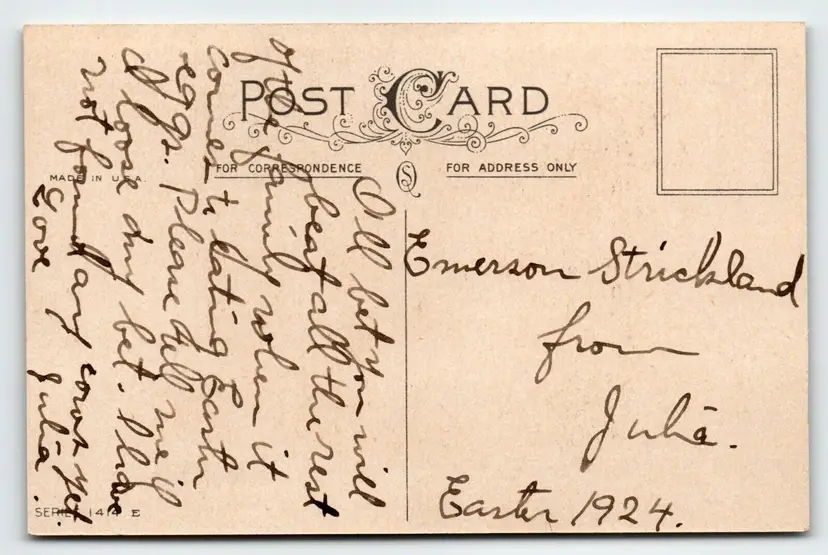 POST CARD
FOR CORRESPONDENCE
FOR ADDRESS ONLY
MADE IN U.S.A.
I'll bet you will
beat all the rest
of the family when it
comes to eating Easter
eggs. Please tell me if
I loose any bet. I have
not found any yet.
Love
Julia.
Emerson Strickland
from
Julia.
Easter 1924.
SERIES 1414 E